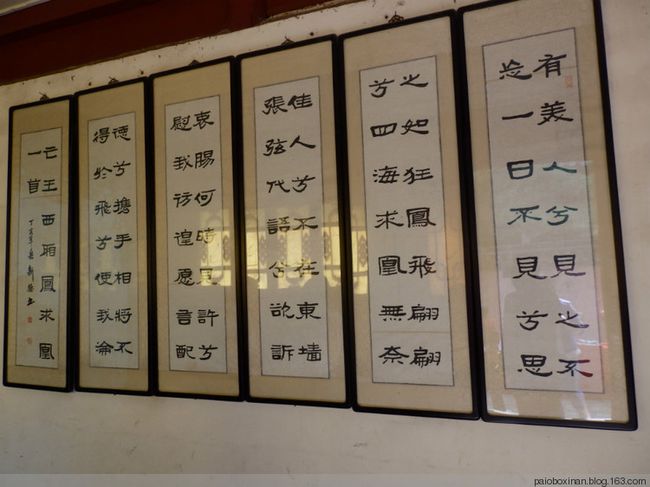 有美人兮見之不
忘一日不見兮思
之如狂鳳飛翩翩
兮四海求凰無奈
佳人兮不在東墙
張弦代語兮欲訴
哀賜何時見許兮
慰我彷徨愿言配
德兮攜手相將不
得於飛兮使我淪
亡王西廂鳳求凰
一首
paioboxinan.blog.163.com